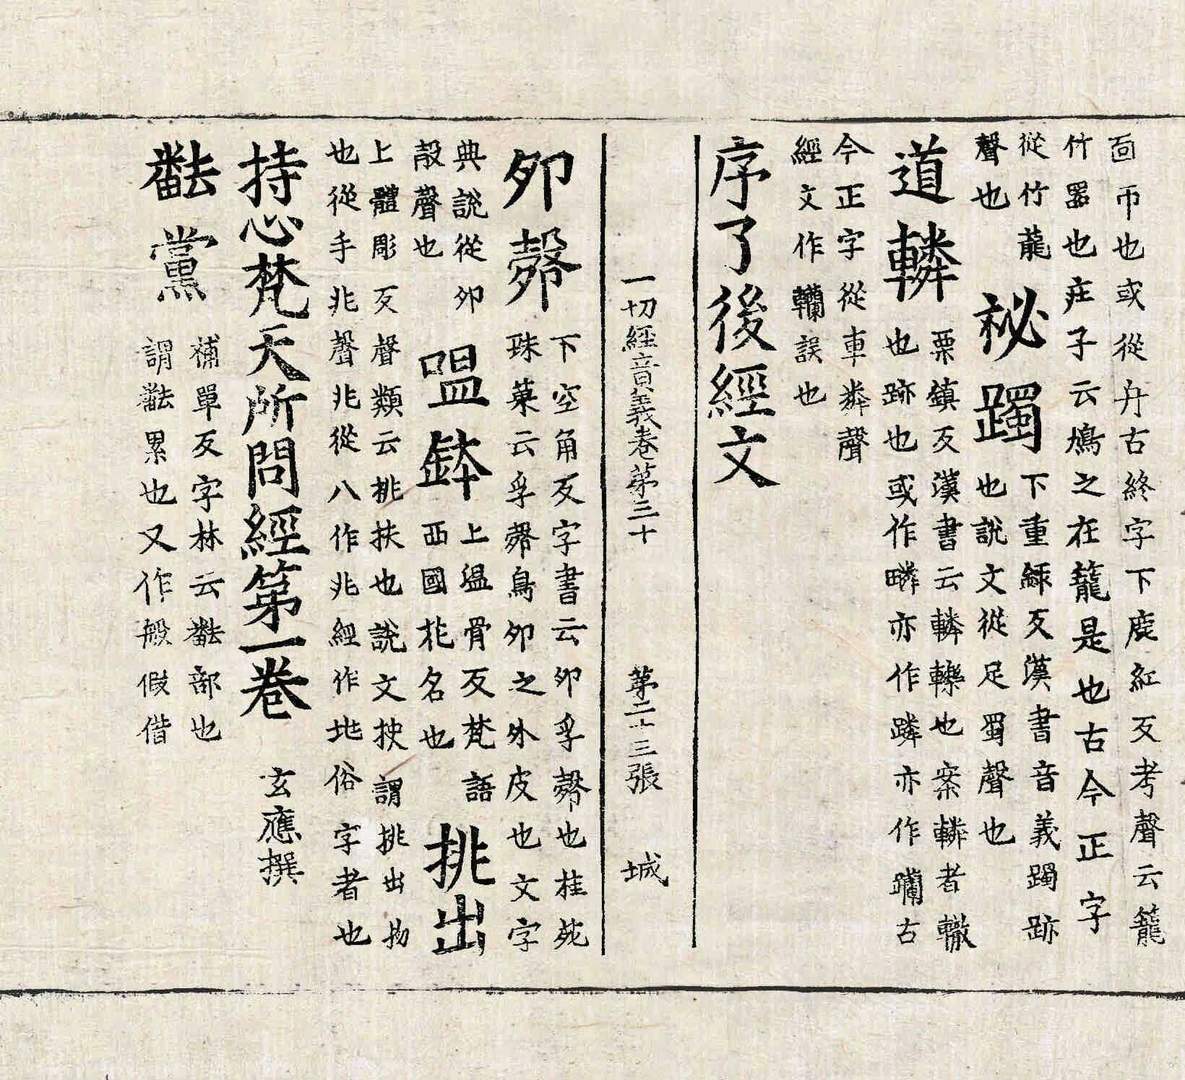 靣帀也或從丹古終字下鹿紅反考聲云籠
竹器也莊子云鳩之在籠是也古今正字
從竹龍
聲也
祕躅
下重緑反漢書音義躅跡
也說文從足蜀聲也
道轔
栗鎮反漢書云轔轢也案轔者轍
也跡也或作疄亦作蹸亦作躪古
今正字從車粦聲
經文作轥誤也
序了後經文
一切經音義卷第三十 第二十三張 城
卵㲉
下空角反字書云卵孚㲉也桂苑
珠藂云孚㲉鳥卵之外皮也文字
典說從卵
㱿聲也
嗢鉢
上溫骨反梵語
西國花名也
挑出
上體彫反聲類云挑抉也說文抉謂挑出物
也從手兆聲兆從八作兆經作地俗字者也
持心梵天所問經第一卷 玄應撰
黨
補單反字林云部也
謂累也又作般假借